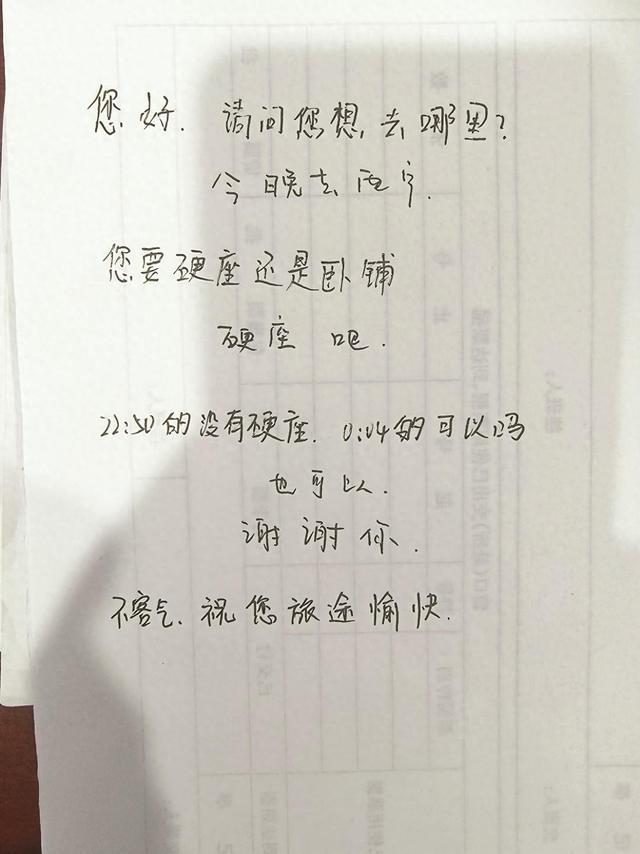 您好. 请问您想去哪里?
今晚去西宁.
您要硬座还是卧铺
硬座 吧.
22:50的没有硬座. 0:04的可以吗
也可以.
谢谢你.
不客气. 祝您旅途愉快.